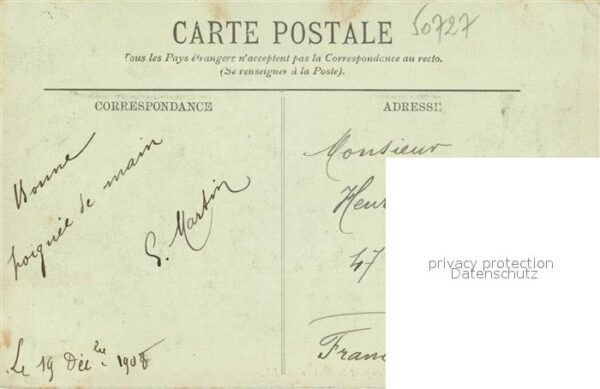 CARTE POSTALE
50727
Tous les Pays étrangers n'acceptent pas la Correspondance au recto.
(Se renseigner à la Poste).
CORRESPONDANCE
ADRESSE
Bonne
poignée de main
G. Martin
Le 19 Déc bre 1908
Monsieur
Henr
47
Franc
privacy protection
Datenschutz